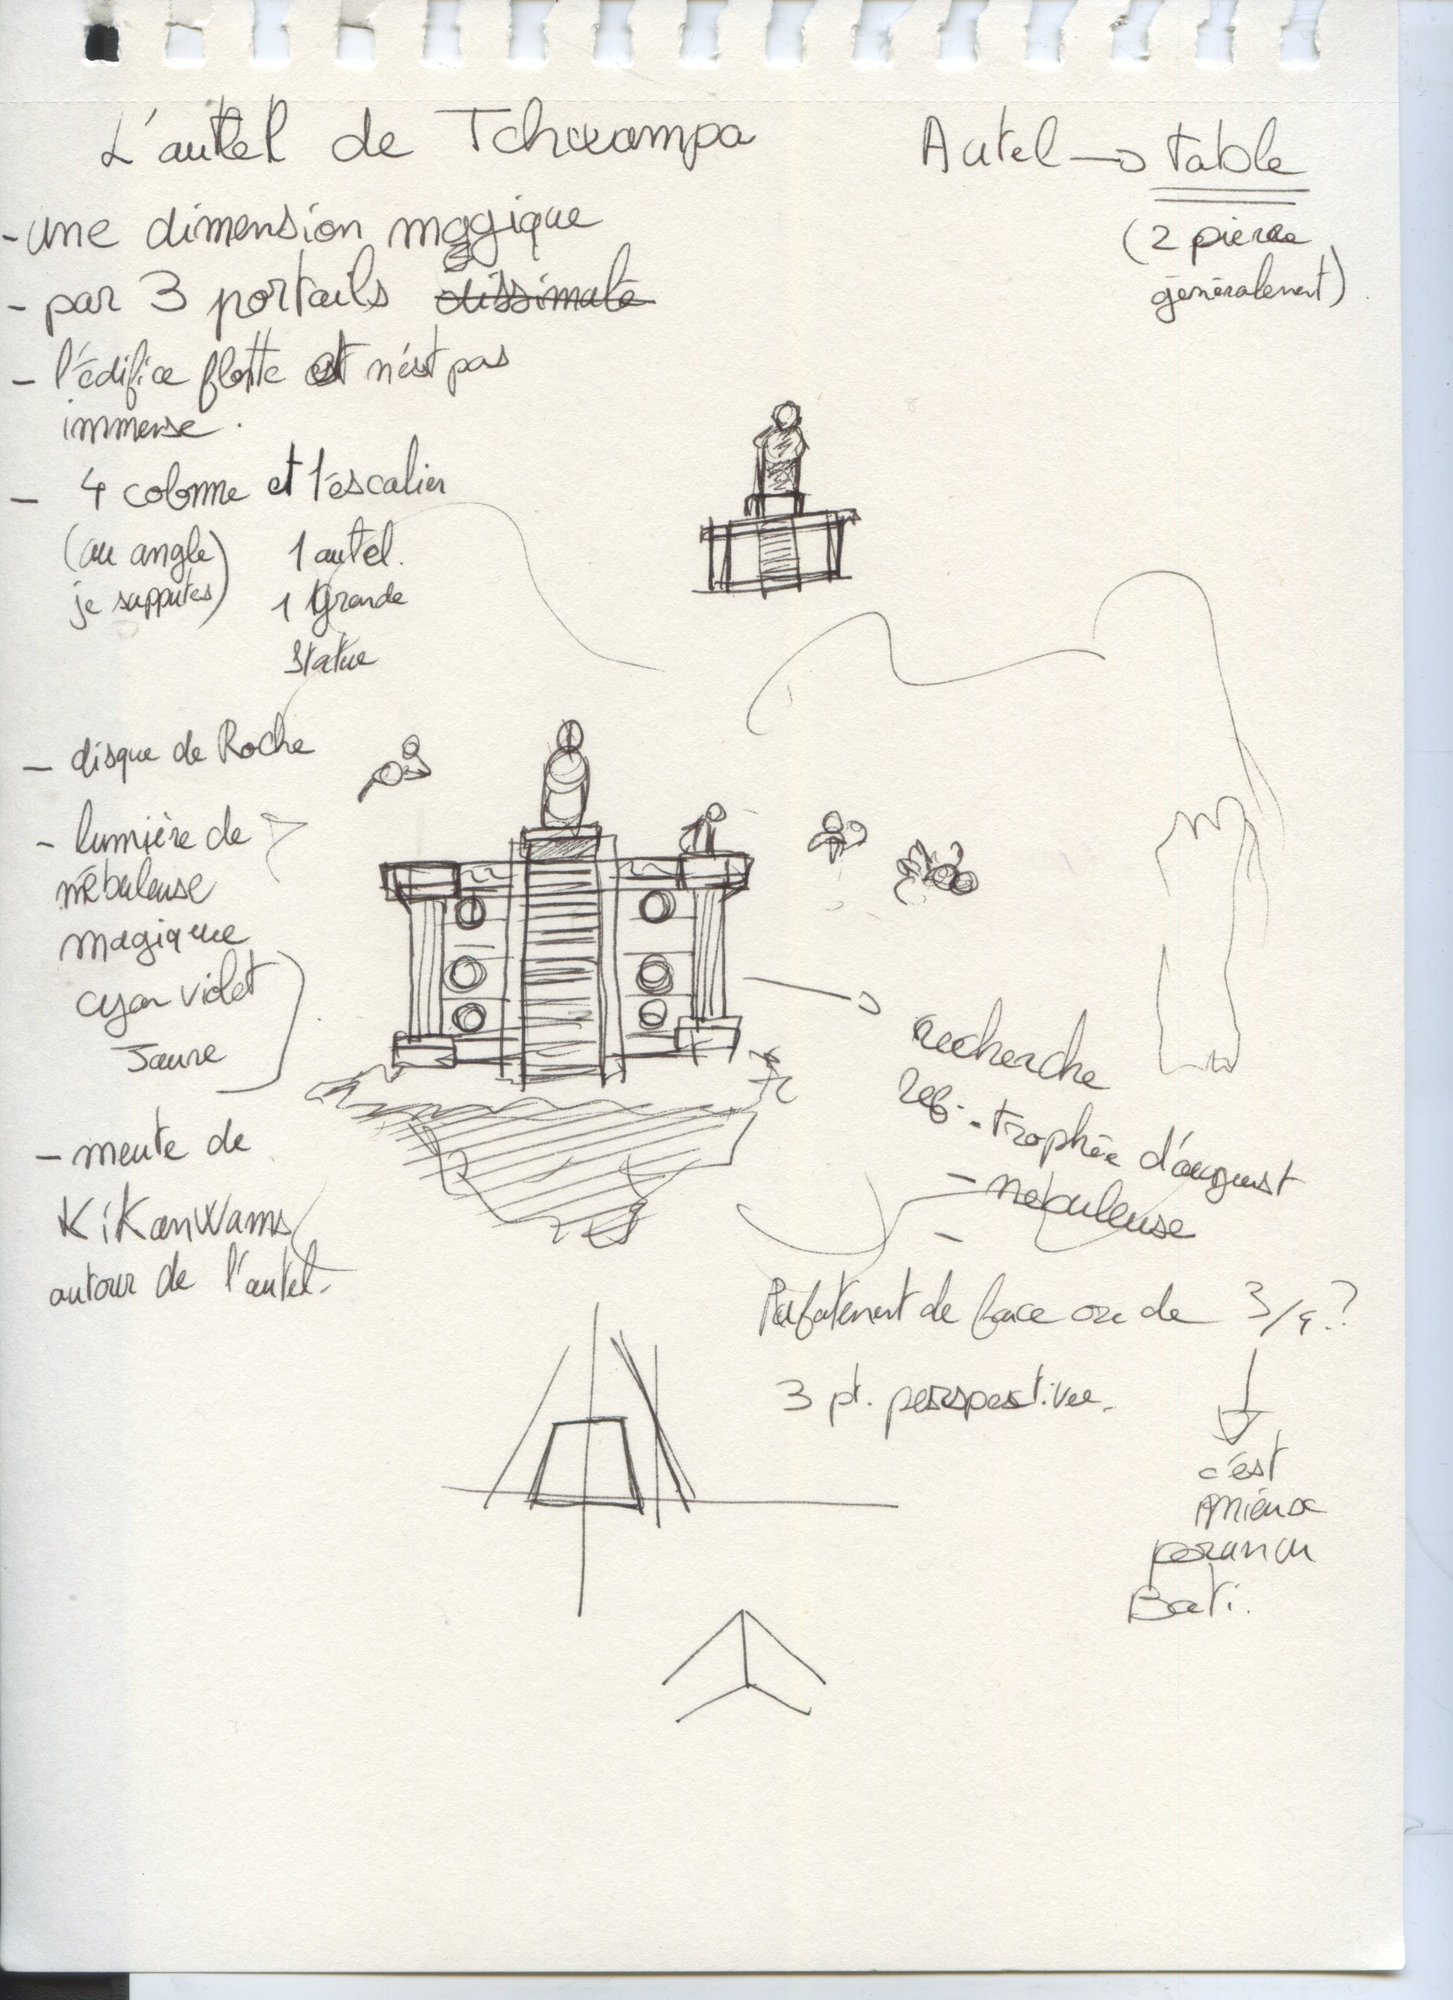 L'autel de Tchwampa
- une dimension magique
- par 3 portails dissimulé
- l'édifice flotte et n'est pas
immense.
- 4 colonne et 1 escalier
(au angle
je supputes)
1 autel.
1 Grande
statue
- disque de Roche
- lumière de
nébuleuse
magique
cyan violet
Jaune
- meute de
KiKanWams
autour de l'autel.
Autel → table
(2 pierre
généralement)
recherche
ref: - trophée d'august
- nébuleuse
-
Parfatement de face ou de 3/4?
3 pt. perspective.
c'est
mieux
pour un
Bati.